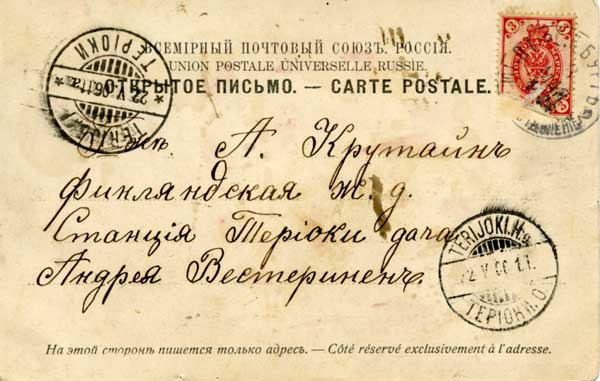 ВСЕМІРНЫЙ ПОЧТОВЫЙ СОЮЗЪ. РОССІЯ.
UNION POSTALE UNIVERSELLE RUSSIE.
ОТКРЫТОЕ ПИСЬМО. — CARTE POSTALE.
3 3
3
ТЕРІОКИ
22.V.06.11a.
TERIJOKI
А. Крутаинъ
Финляндская ж. д.
Станція Теріоки дача
Андрея Вестериненъ.
TERIJOKI.H.o.
22 V 06 1.T.
ТЕРІОКИ.О.
На этой сторонѣ пишется только адресъ. — Côté réservé exclusivement à l'adresse.